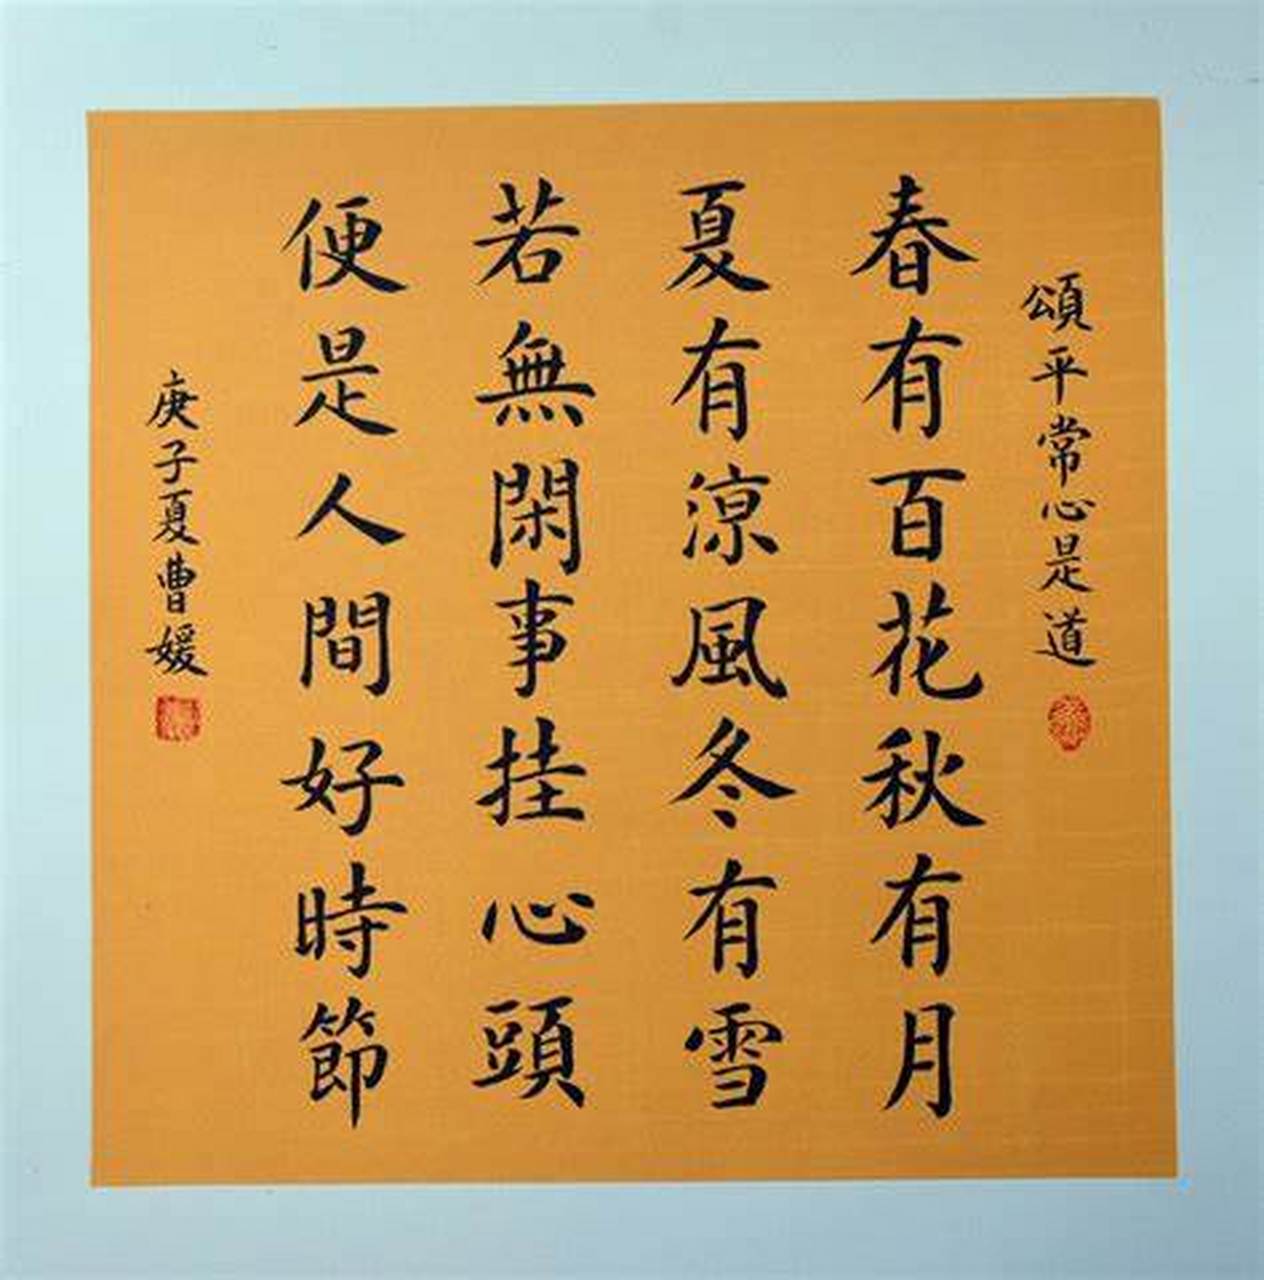 頌平常心是道
春有百花秋有月
夏有涼風冬有雪
若無閑事挂心頭
便是人間好時節
庚子夏曹媛